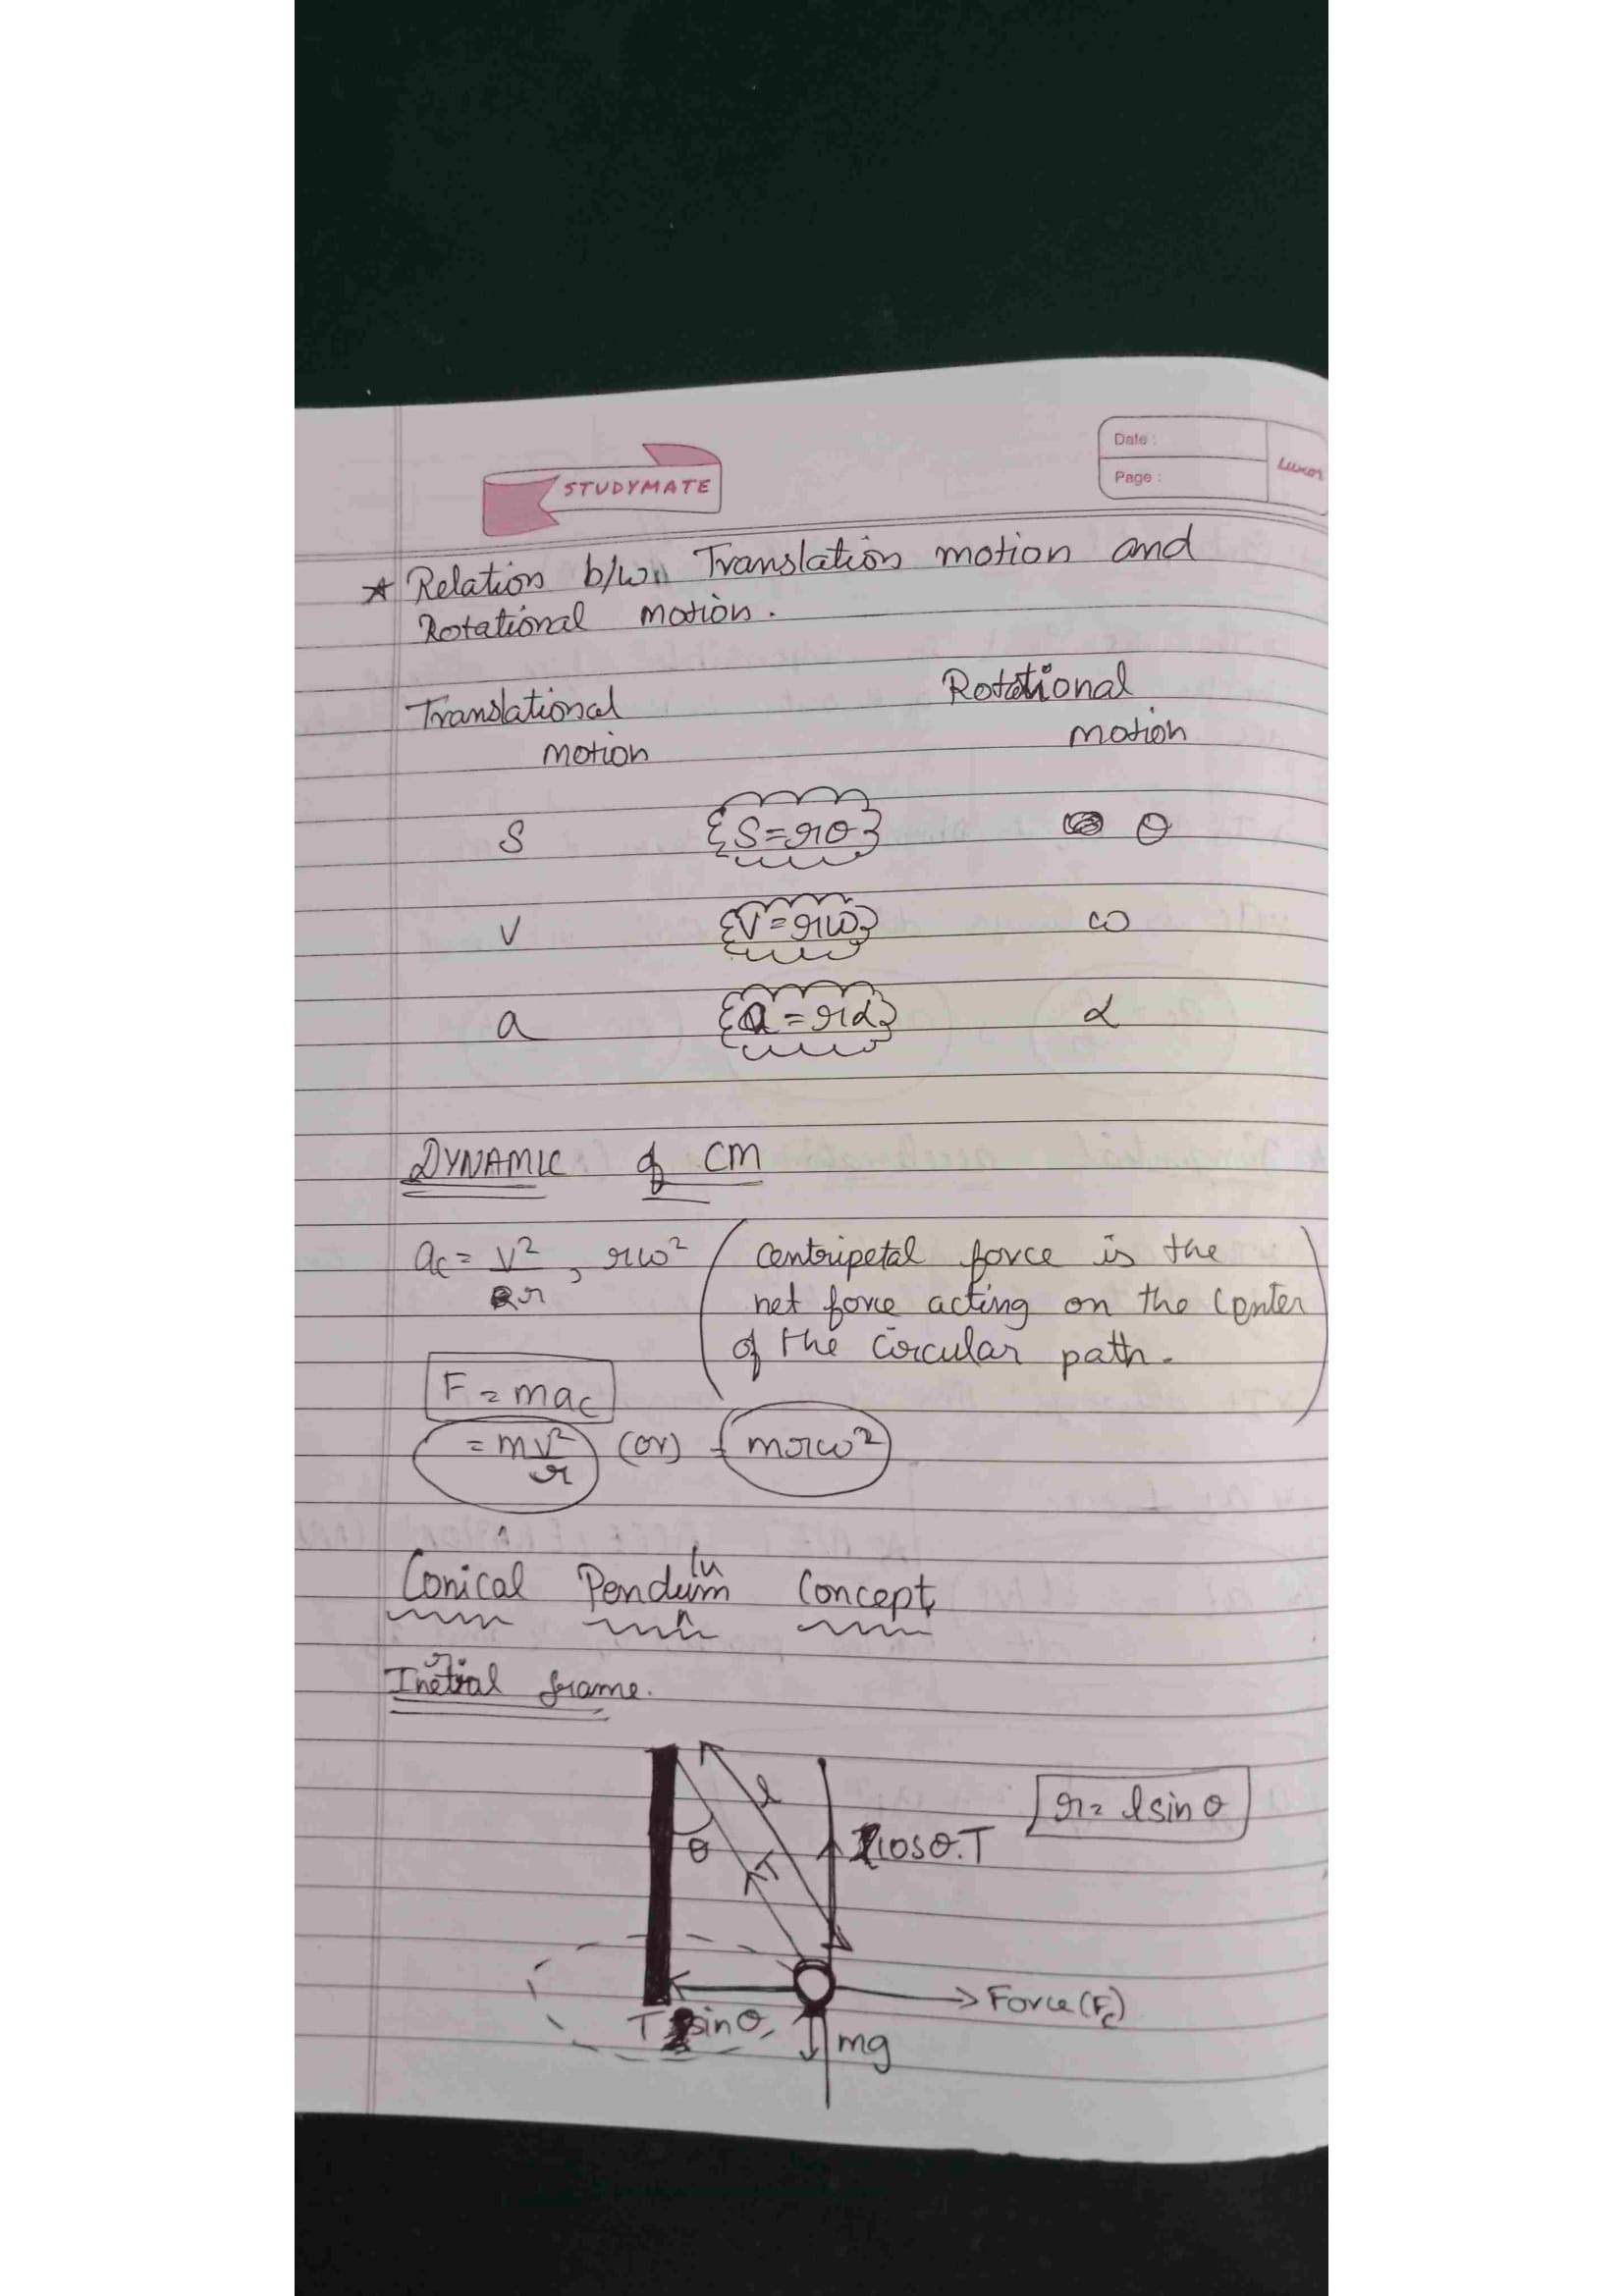 STUDYMATE
Date :
Page :
Luxor
* Relation b/w Translation motion and
Rotational motion.
Translational motion
Rotational motion
S {S=rθ} θ
V {V=rω} ω
a {a=rα} α
DYNAMIC of CM
ac = v²/r, rω² (Centripetal force is the
net force acting on the center
of the circular path.)
F = mac
= mv²/r (or) = mrω²
Conical Pendulum Concept
Inertial frame.
l
r = lsinθ
θ
T
cosθ.T
Force (Fc)
T sinθ
mg